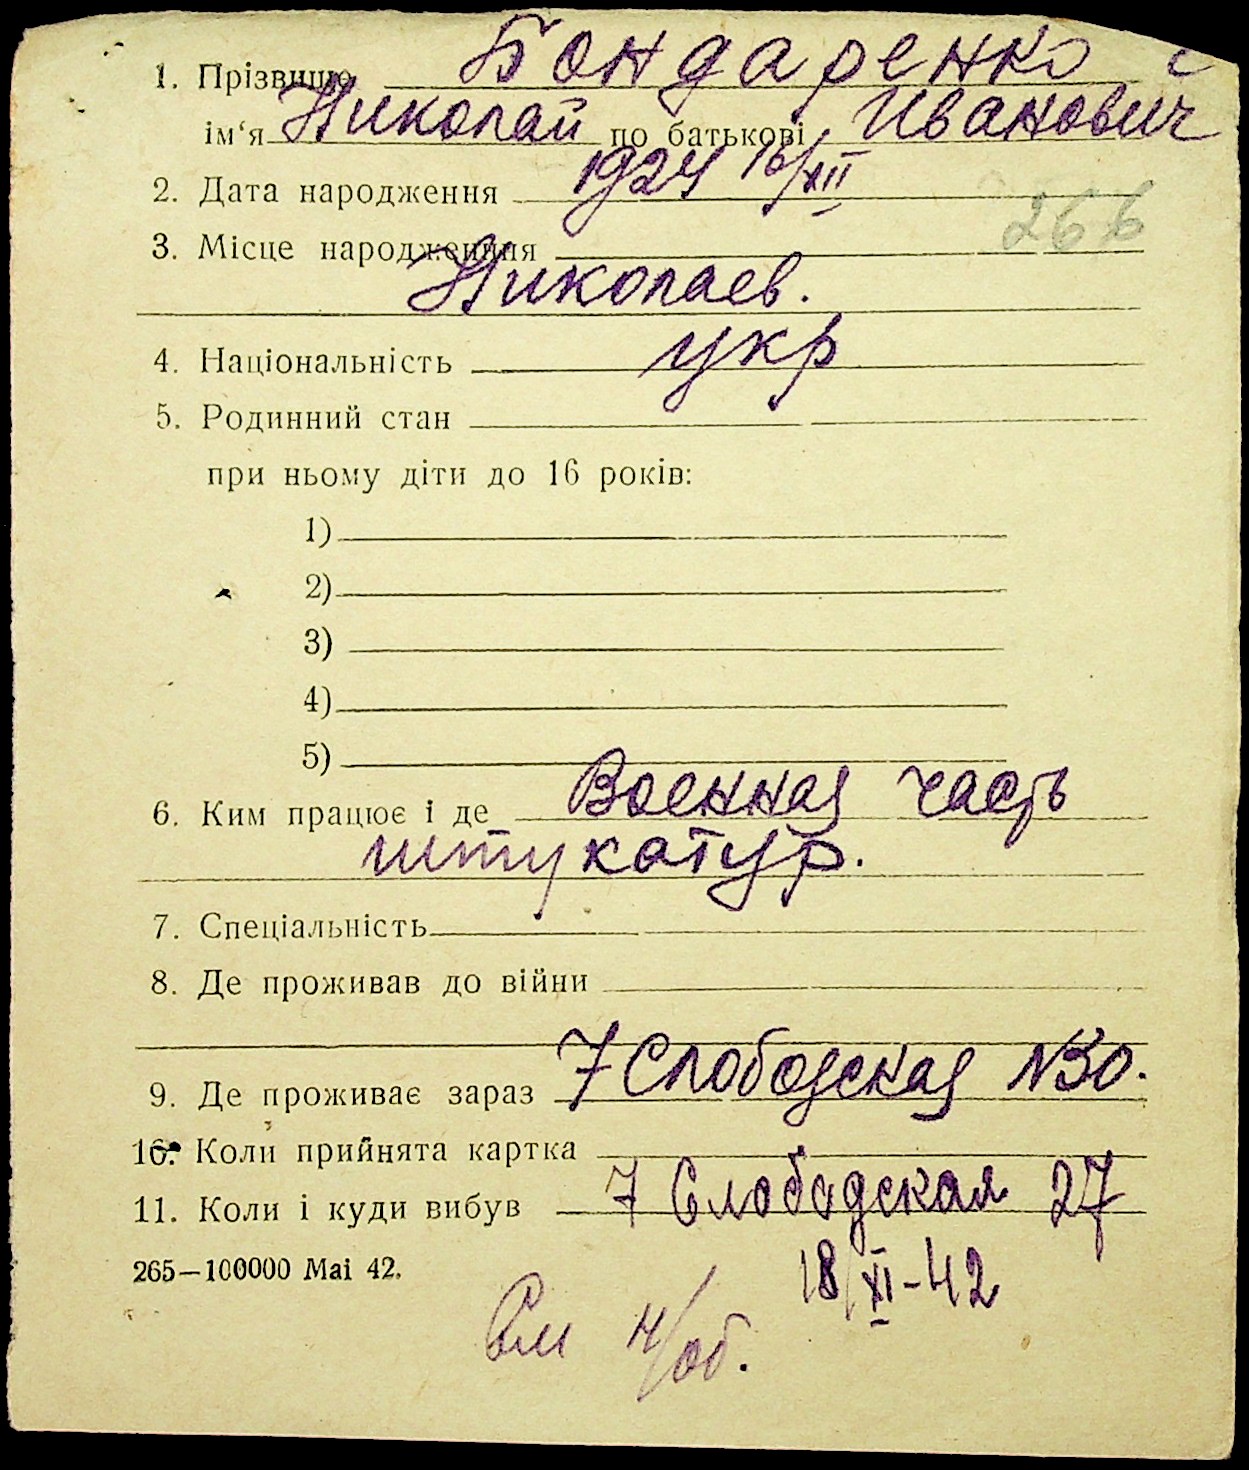 1. Прізвище Бондаренко
ім‘я Николай по батькові Иванович
2. Дата народження 1924 16/XII
266
3. Місце народження
Николаев.
4. Національність укр
5. Родинний стан
при ньому діти до 16 років:
1)
2)
3)
4)
5)
6. Ким працює і де Военная часть
штукатур.
7. Спеціальність
8. Де проживав до війни
9. Де проживає зараз 7 Слободская №30.
10. Коли прийнята картка
11. Коли і куди вибув 7 Слободская 27
265—100000 Mai 42. 18/XI-42
См н/об.